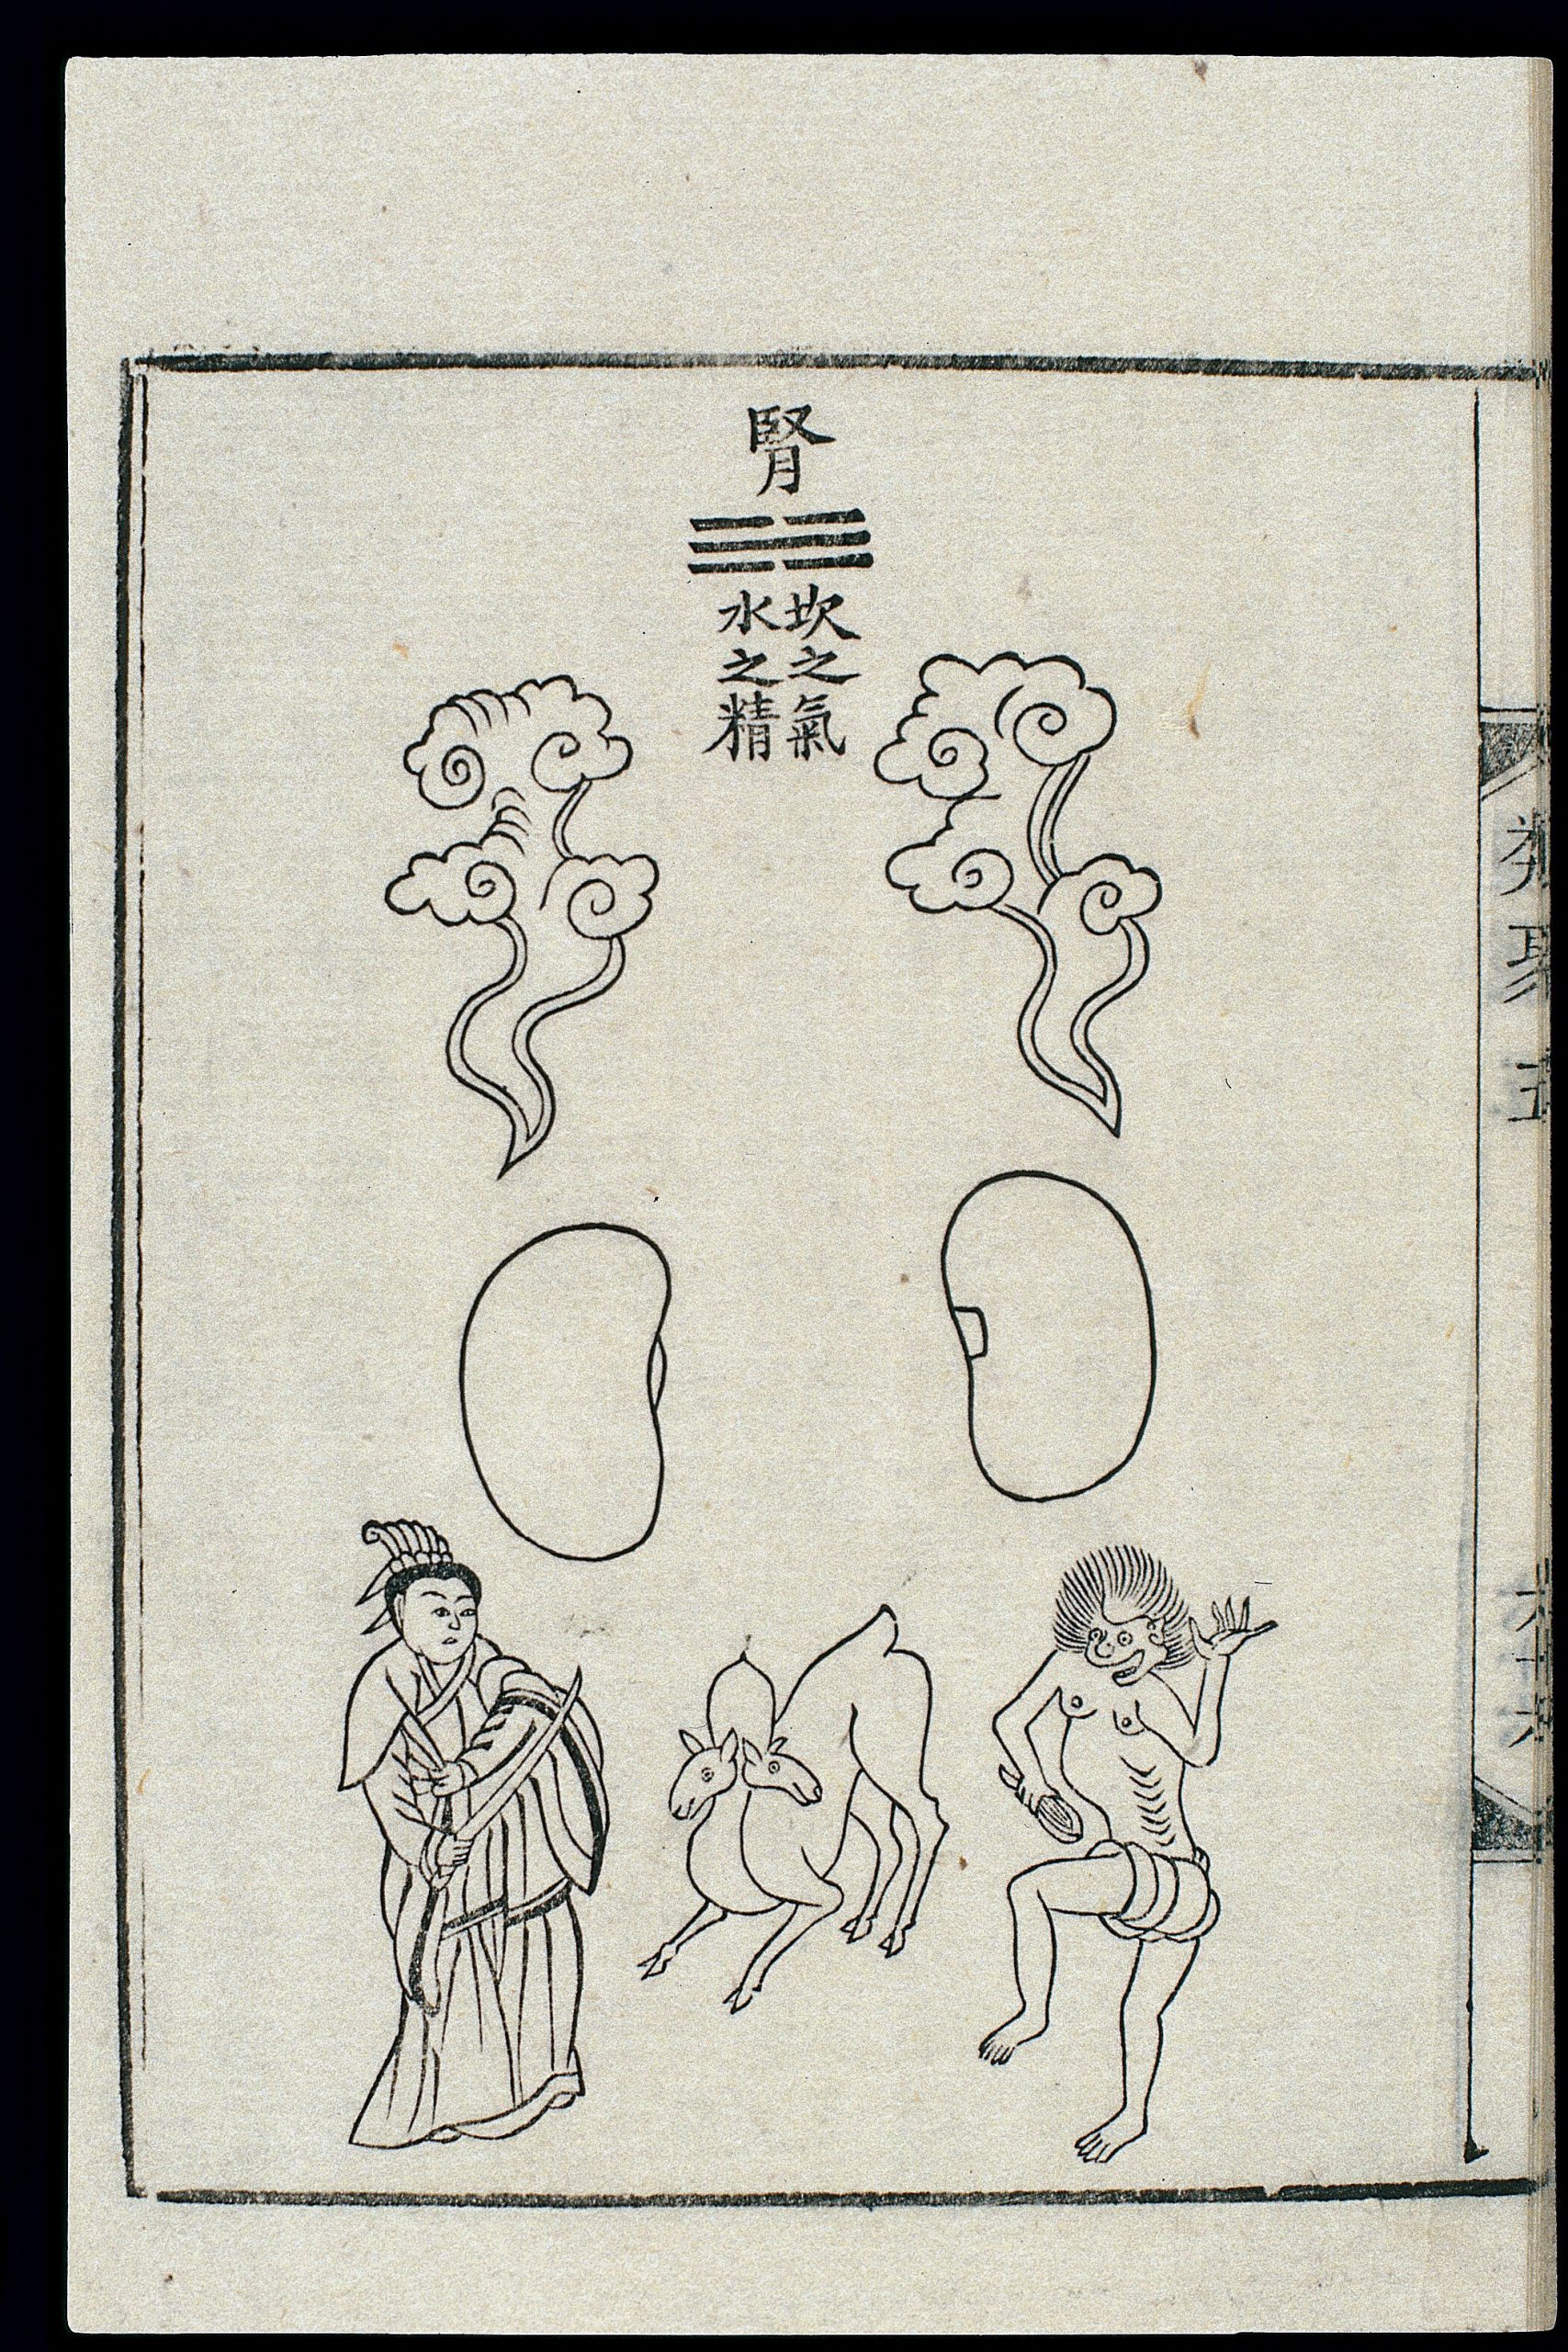 腎
坎之氣
水之精